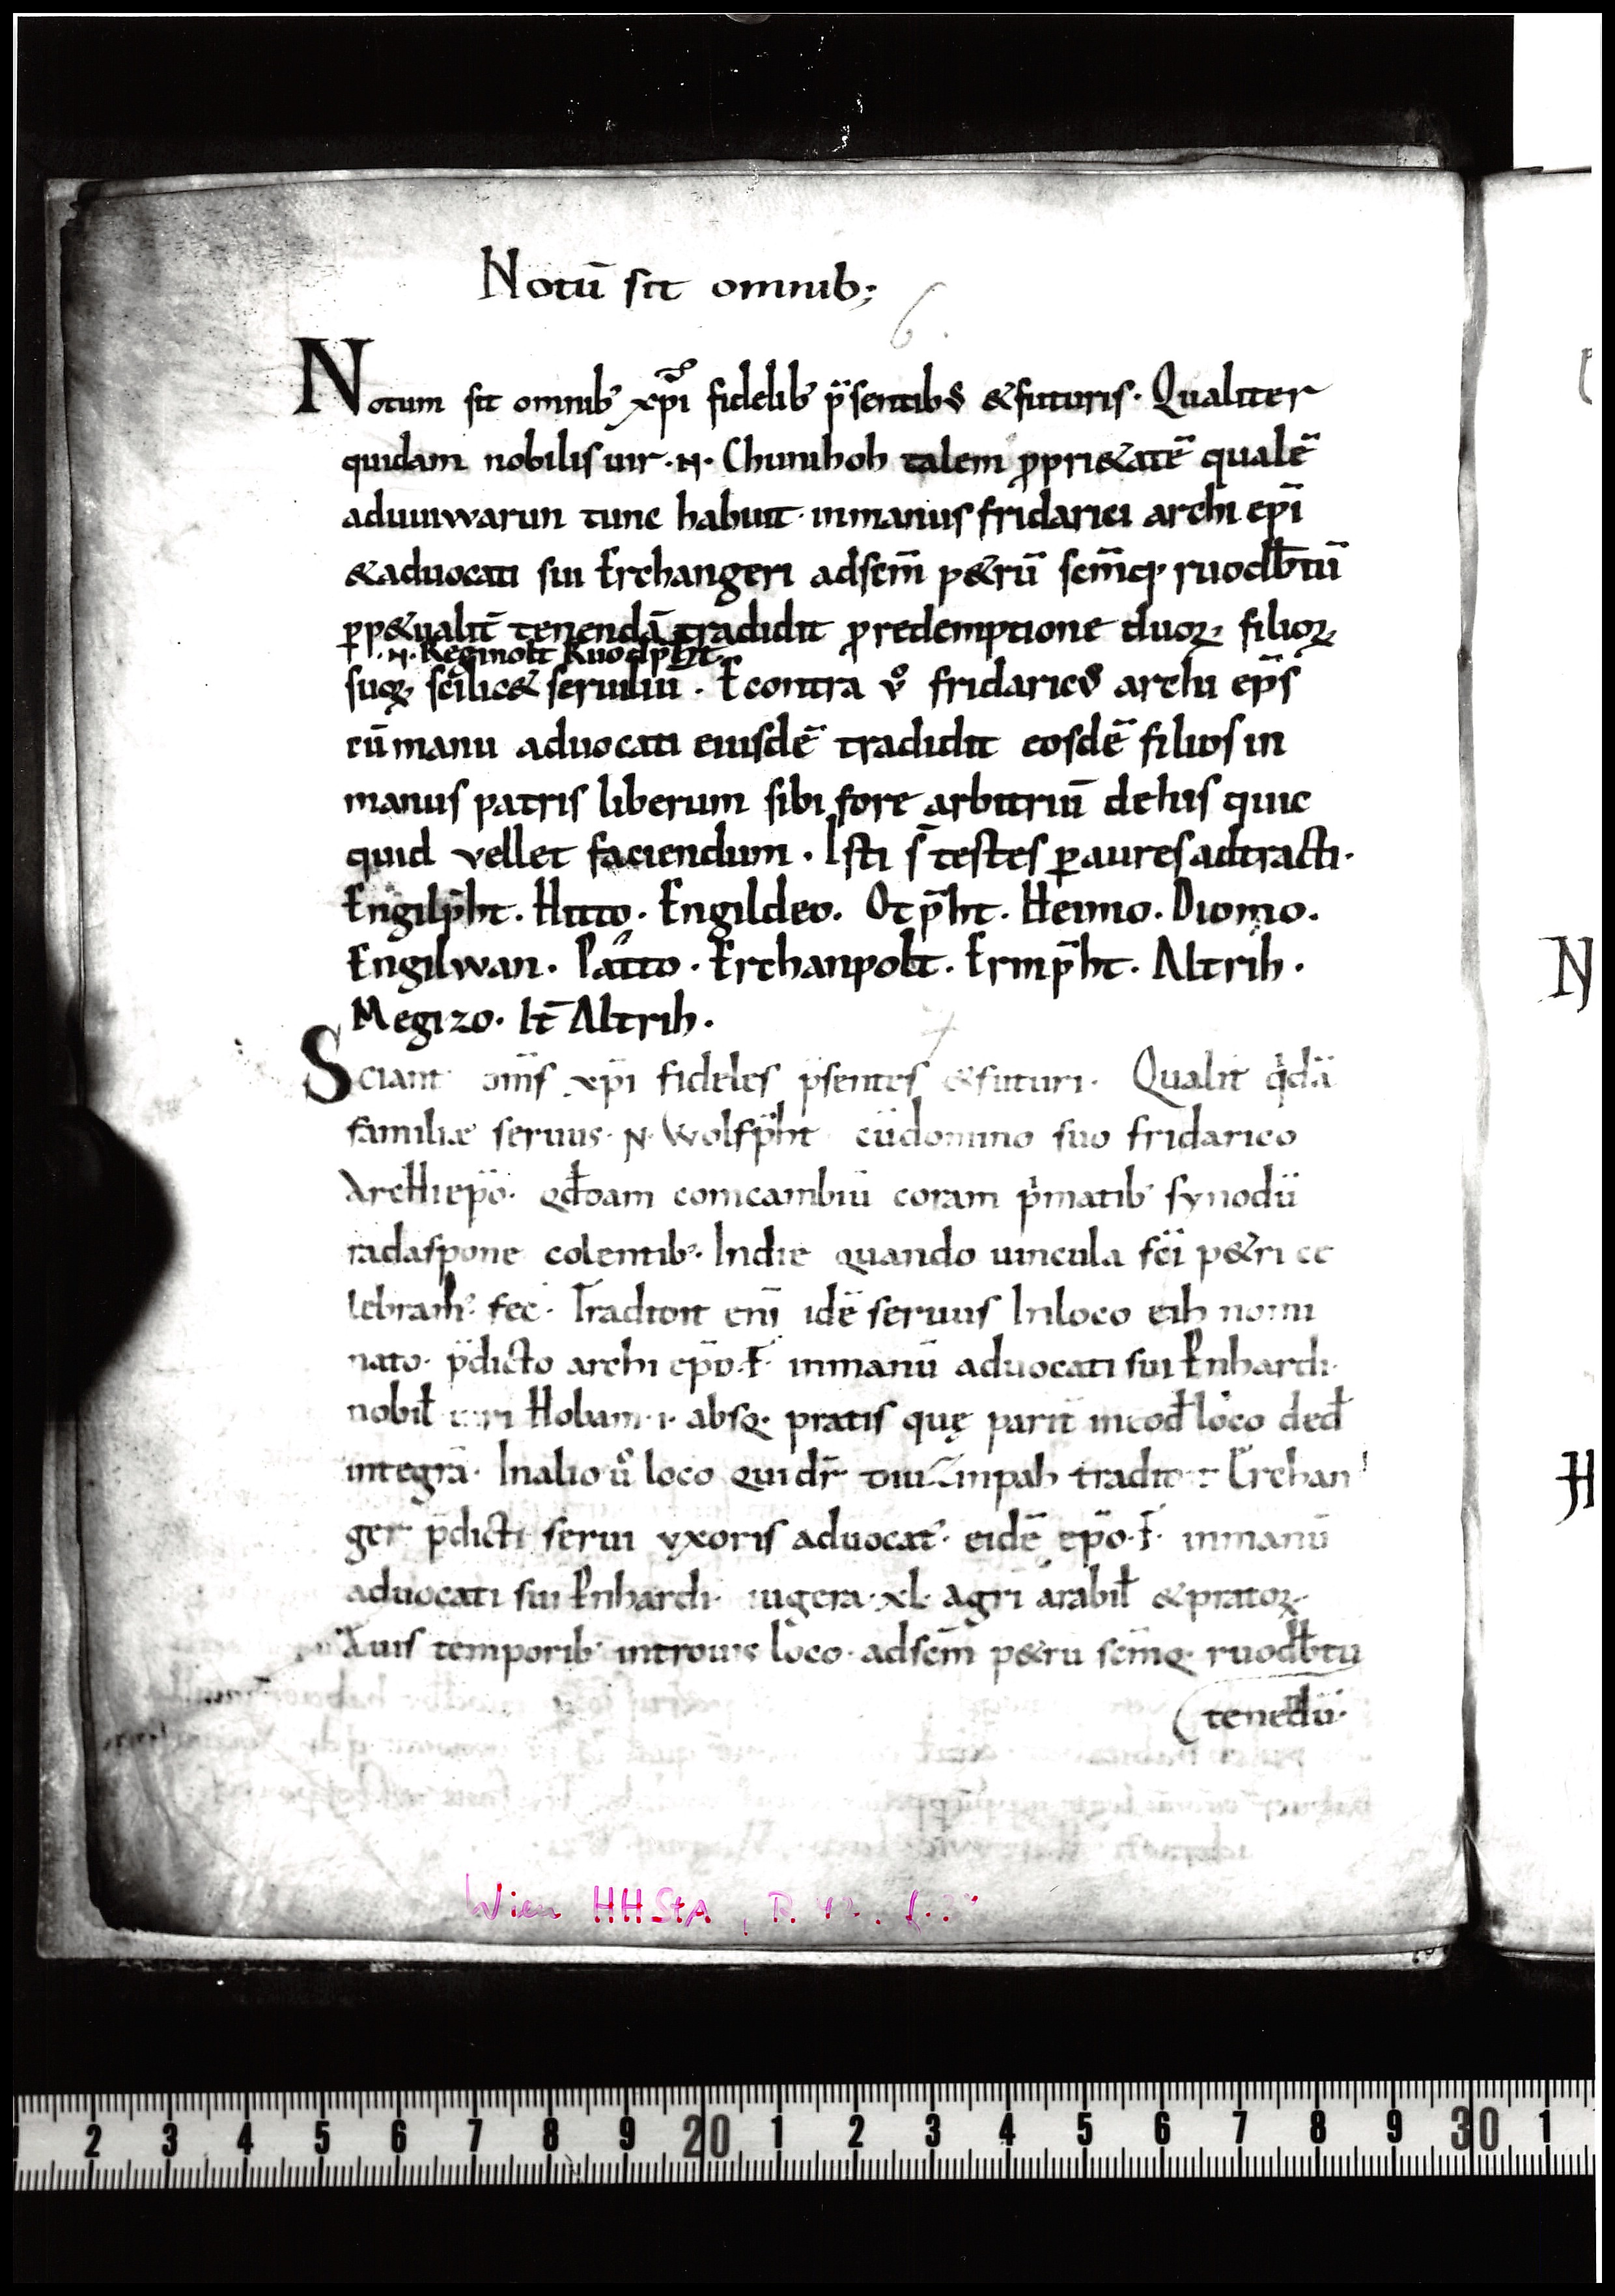 Notū sit omnib;
6.
Notum sit omnib' xp̄i fidelib' p̄sentib9 & futuris. Qualiter
quidam nobilis uir .N. Chunihoh talem ꝓpri&atē qualē
aduuiwarun tunc habuit. inmanus fridarici archi ep̄i
& aduocati sui Erchangeri adsc̄m p&rū sc̄mq; ruodb̄tū
ꝑp&ualit̄ tenendā tradidit ꝓredemptione duoꝝ filioꝝ
.N. Reginolt Ruodp̄ht.
suoꝝ scilic& seruiliū. Econtra v̊ fridaric9 archi ep̄s
cū manu aduocati eiusdē tradidit eosdē filios in
manus patris liberum sibi fore arbitriū dehis quic
quid vellet faciendum. Isti s̄ testes ꝑ aures adtracti.
Engilp̄ht. Hitto. Engildeo. Otp̄ht. Heimo. Diomo.
Engilwan. Patto. Erchanpolt. Ermp̄ht. Altrih.
Megizo. It̄ Altrih.
7
Sciant om̄s xp̄i fideles p̄sentes & futuri. Qualit̄ q̇dā
familiæ seruus .N. Wolfp̄ht cūdomino suo fridarico
Archiep̄o. qđdam comcambiū coram ṗmatib' synodū
radaspone colentib'. Indie quando uincula sc̄i p&ri ce
lebram̄' fec̄. Tradidit eni idē seruus Inloco eih nomi
nato. p̄dicto archi ep̄o .F. inmanū aduocati sui Enhardi.
nobil̄ uiri Hobam .i. absq; pratis quę parit̄ ineod̄ loco ded̄
integrā. Inalio ů loco qui dr̄ diuzinpah tradidit Erchan
ger p̄dicti serui vxoris aduocat'. eidē ep̄o .F. inmanū
aduocati sui Enhardi. iugera .xl. agri arabil̄ & pratoꝝ.
temporib' loco. adsc̄m p&rū sc̄mq; ruodb̄tū
tenedū.
Wien HHStA, R.
N
H
2 3 4 5 6 7 8 9 20 1 2 3 4 5 6 7 8 9 30 1